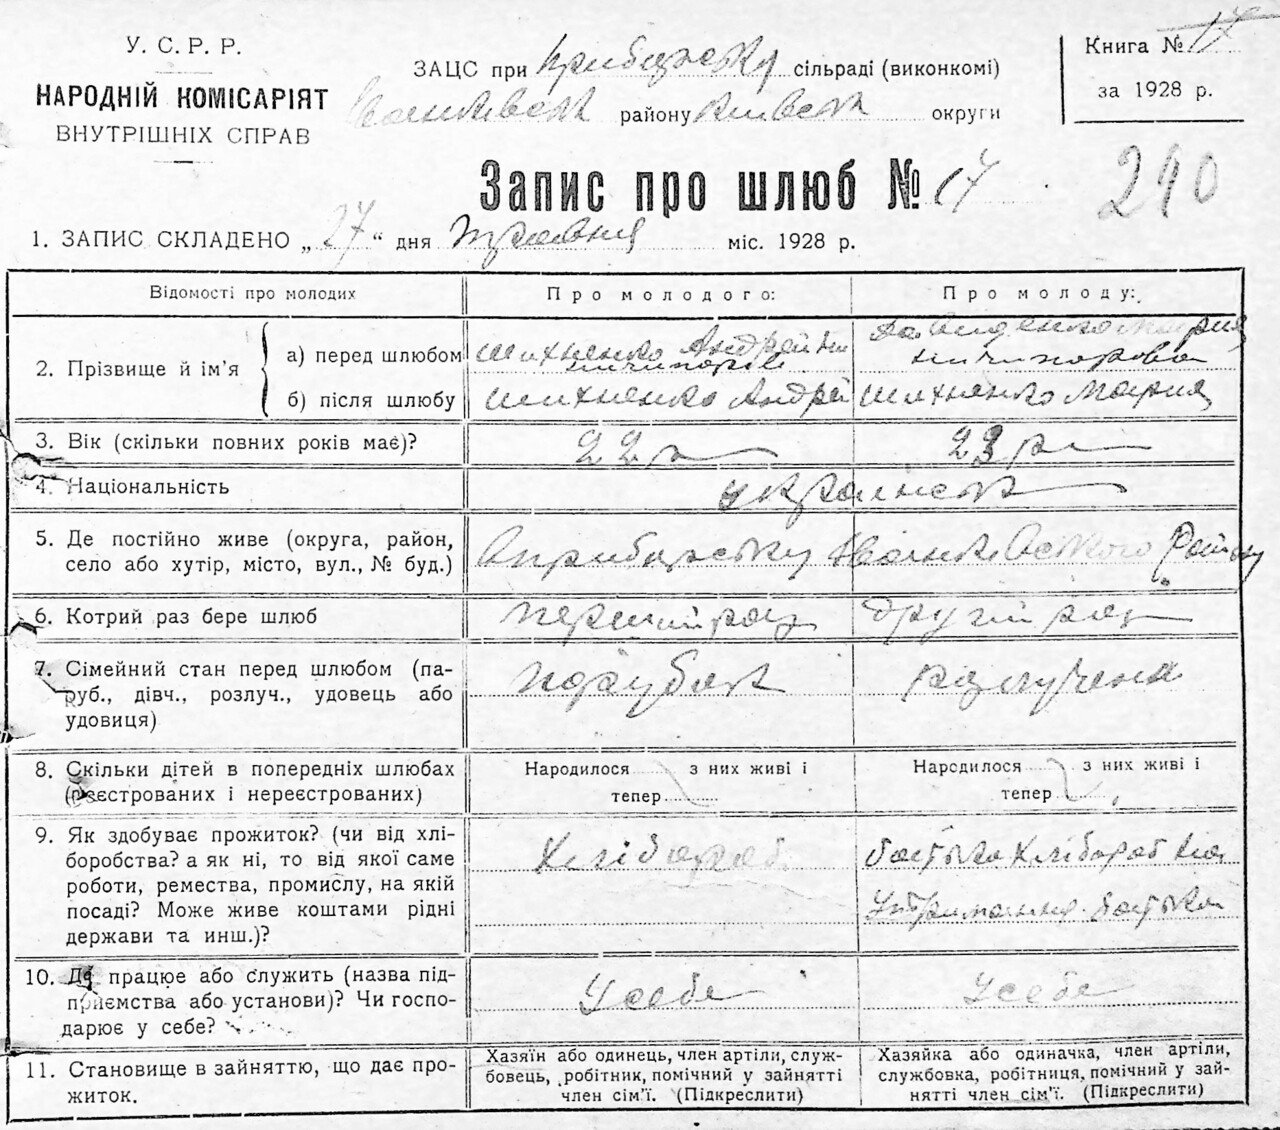 У. С. Р. Р.
НАРОДНІЙ КОМІСАРІЯТ
ВНУТРІШНІХ СПРАВ
ЗАЦС при сільраді (виконкомі)
району округи
Книга № 17
за 1928 р.
Запис про шлюб № 17
240
1. ЗАПИС СКЛАДЕНО „ 27 “ дня травня міс. 1928 р.
Відомості про молодих
Про молодого:
Про молоду:
2. Прізвище й ім'я
а) перед шлюбом
Шихненко Андрей
Давиденко Мария
ничипорова
б) після шлюбу
Шихненко Андрей
Шихненко Мария
3. Вік (скільки повних років має)?
22 р
23 р
4. Національність
5. Де постійно живе (округа, район,
село або хутір, місто, вул., № буд.)
6. Котрий раз бере шлюб
першій раз
другій раз
7. Сімейний стан перед шлюбом (па-
руб., дівч., розлуч., удовець або
удовиця)
парубак
разлучена
8. Скільки дітей в попередніх шлюбах
(реєстрованих і нереєстрованих)
Народилося з них живі і
тепер
Народилося з них живі і
тепер
9. Як здобуває прожиток? (чи від хлі-
боробства? а як ні, то від якої саме
роботи, ремества, промислу, на якій
посаді? Може живе коштами рідні
держави та инш.)?
Хлібороб
батько хлібороб на
утриманню батька
10. Де працює або служить (назва під-
приємства або установи)? Чи госпо-
дарює у себе?
У себе
У себе
11. Становище в зайняттю, що дає про-
житок.
Хазяїн або одинець, член артіли, служ-
бовець, робітник, помічний у зайнятті
член сім'ї. (Підкреслити)
Хазяйка або одиначка, член артіли,
службовка, робітниця, помічний у зай-
нятті член сім'ї. (Підкреслити)